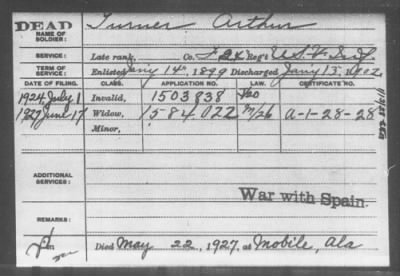 DEAD
NAME OF SOLDIER:
Turner Arthur
SERVICE:
Late rank, Co. F 24 Reg't U.S. Inf.
TERM OF SERVICE:
Enlisted Jany 14 1899 Discharged Jany 13, 1902
DATE OF FILING. CLASS. APPLICATION NO. LAW. CERTIFICATE NO.
1924 July 1 Invalid, 1503838
1927 June 17 Widow, 1584022 A-1-28-28
Minor,
ADDITIONAL SERVICES:
War with Spain.
REMARKS:
Died May 22, 1927, at Mobile, Ala